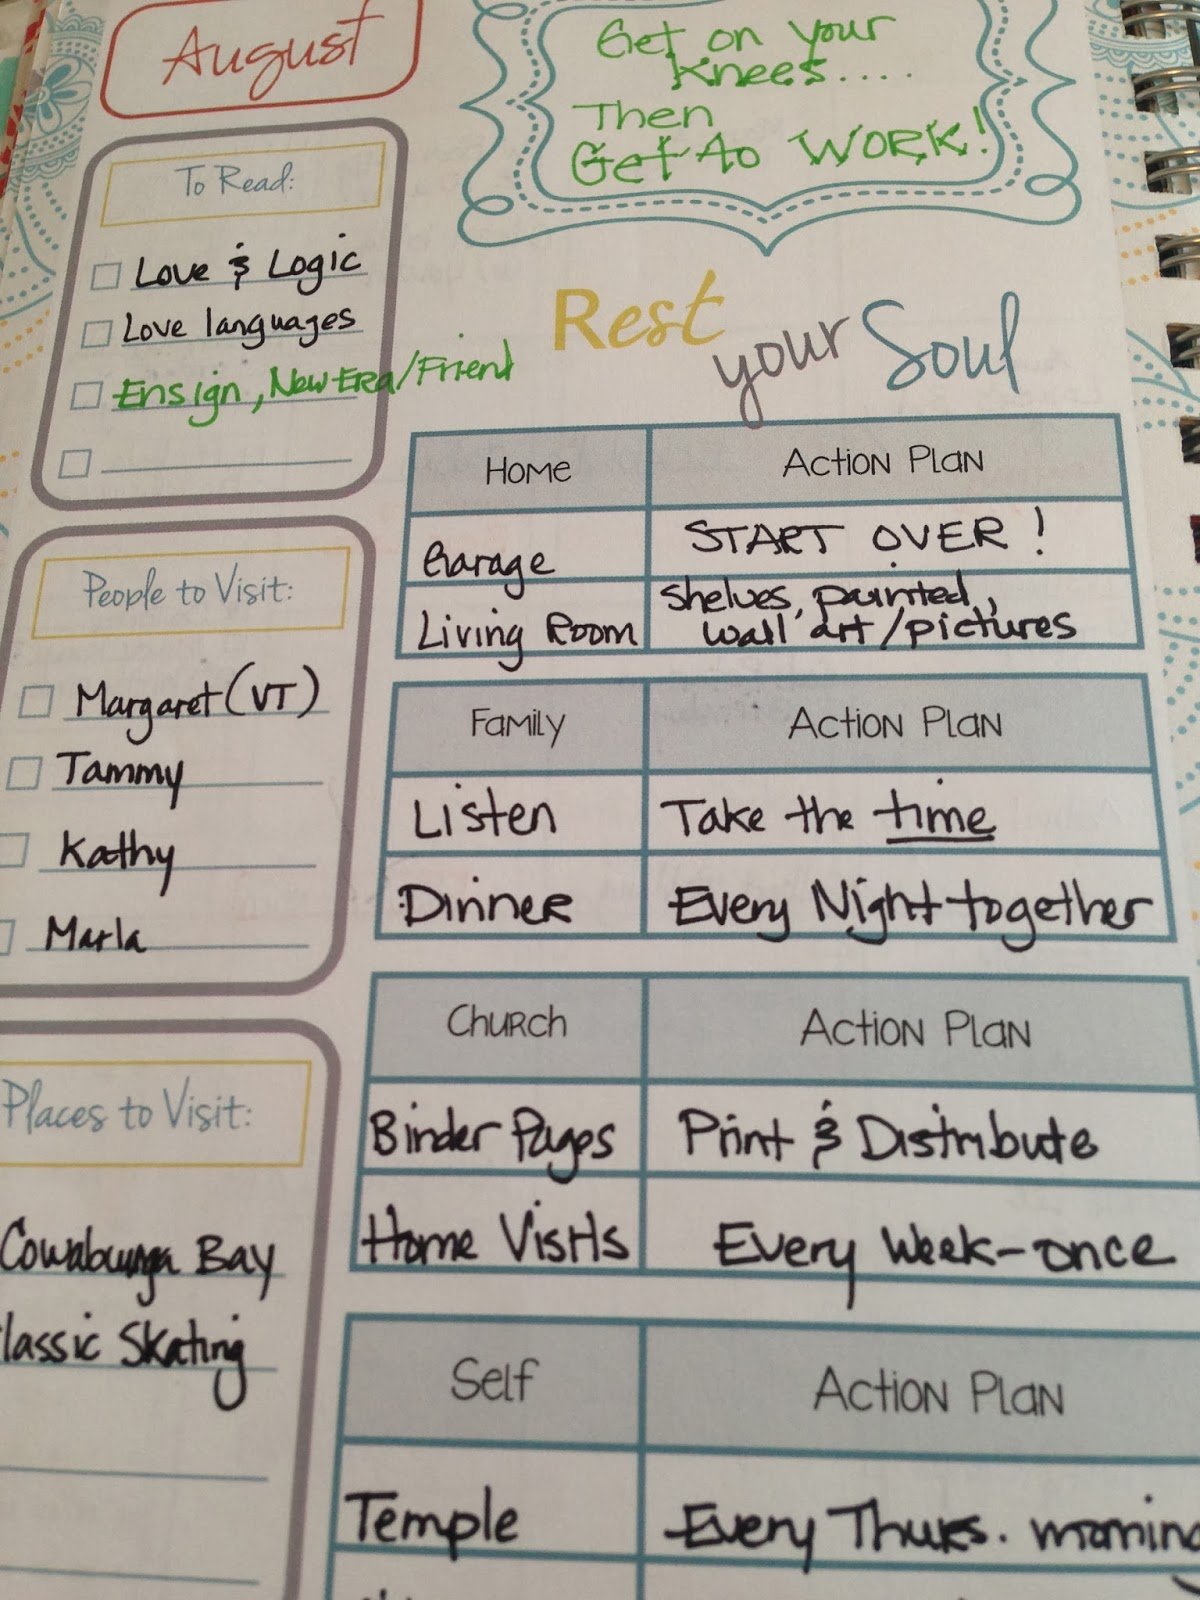 August
Get on your
Knees....
Then
Get to WORK!
To Read:
Love & Logic
Love languages
Ensign, New Era/Friend
People to Visit:
Margaret (VT)
Tammy
Kathy
Marla
Places to Visit:
Cowabunga Bay
lassic Skating
Rest your Soul
Home Action Plan
Garage START OVER!
Living Room shelves, painted,
wall art/pictures
Family Action Plan
Listen Take the time
Dinner Every Night together
Church Action Plan
Binder Pages Print & Distribute
Home Visits Every Week-once
Self Action Plan
Temple Every Thurs. morning